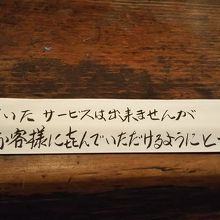 いた サービスは出来ませんが
お客様に㐂んでいただけるようにと